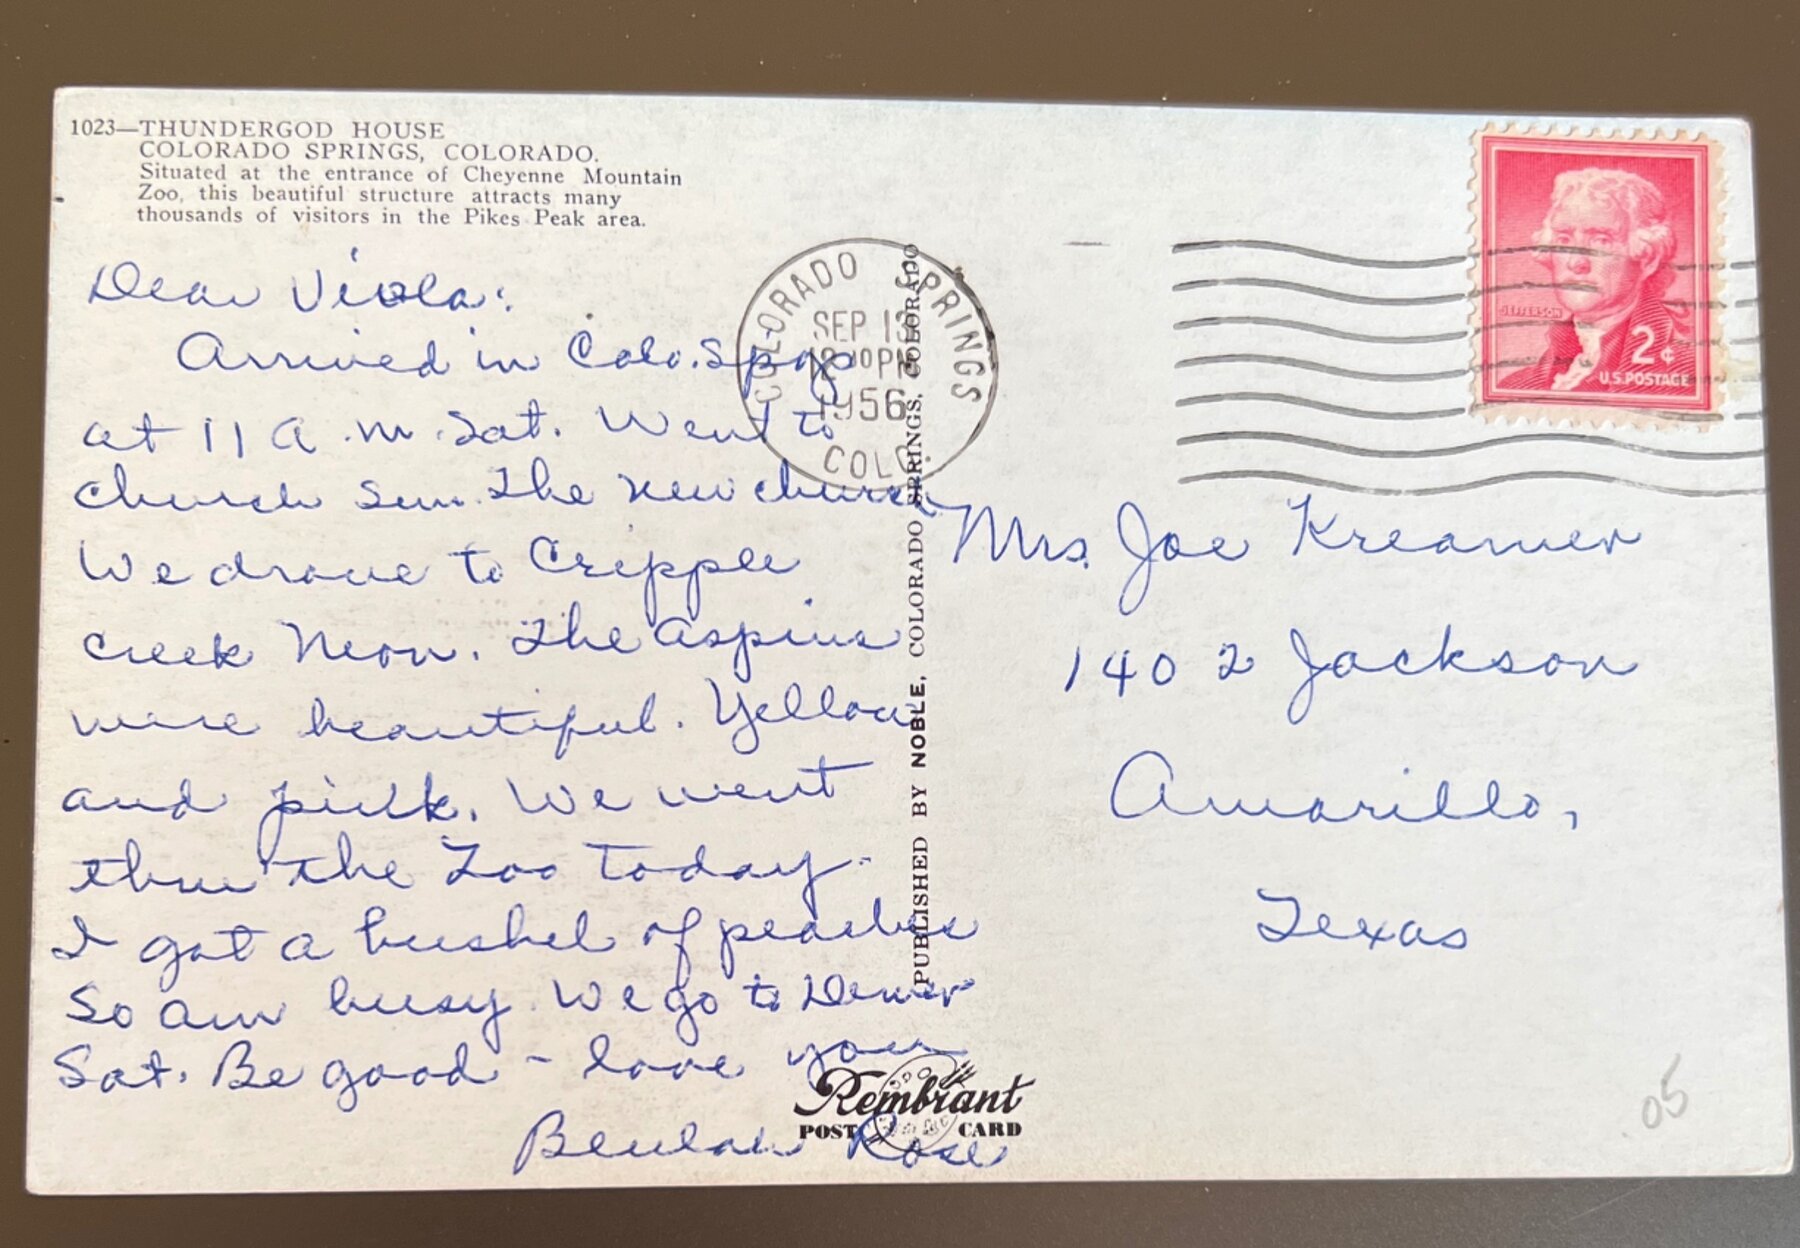 1023—THUNDERGOD HOUSE
COLORADO SPRINGS, COLORADO.
Situated at the entrance of Cheyenne Mountain
Zoo, this beautiful structure attracts many
thousands of visitors in the Pikes Peak area.
Dear Viola:
Arrived in Colo. Spgs
at 11 A.M. Sat. Went to
church Sun. The new church
We drove to Cripple
creek Mon. The aspins
were beautiful. Yellow
and pink. We went
thru the Zoo today.
I got a bushel of peaches
so am busy. We go to Denver
Sat. Be good - love you
Beulah Rose
COLORADO SPRINGS
SEP 13
PM
1956
COLO.
PUBLISHED BY NOBLE, COLORADO SPRINGS, COLORADO
Rembrant
POST CARD
JEFFERSON
2¢
U.S. POSTAGE
Mrs. Joe Kreamer
1402 Jackson
Amarillo,
Texas
.05